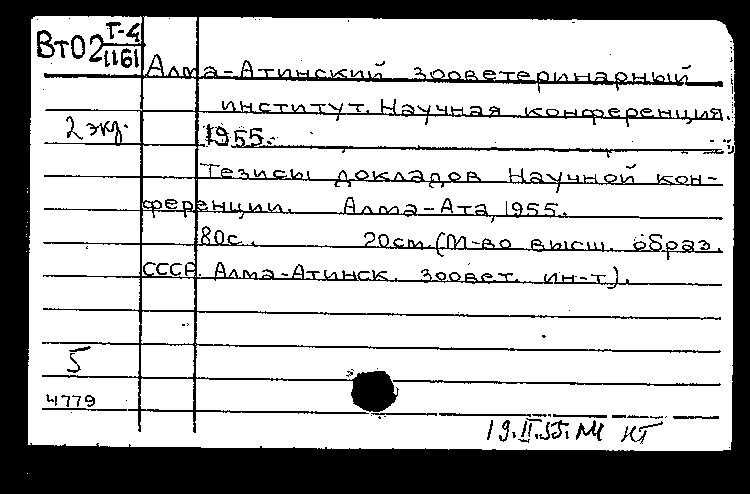 Вт02 Т-4/1161
Алма-Атинский зооветеринарный
институт. Научная конференция.
2 экз.
1955.
Тезисы докладов Научной кон-
ференции. Алма-Ата, 1955.
80с. 20см. (М-во высш. образ.
СССР. Алма-Атинск. зоовет. ин-т).
5
4779
19.II.55. КТ